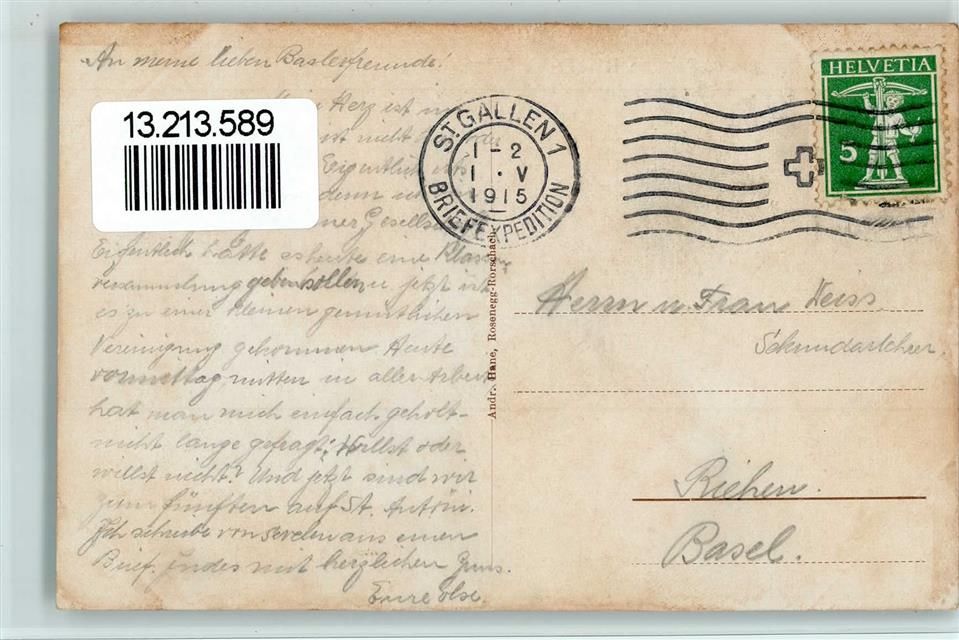 An meine lieben Baslerfreunde!
13.213.589
Herz ist
ist nicht
Eigentlich
denn
Gesells
Eigentlich hätte es heute eine Klassen
versammlung geben sollen u. jetzt ist
es zu einer kleinen gemütlichen
Vereinigung gekommen. Heute
vormittag mitten in aller Arbeit
hat man mich einfach geholt -
nicht lange gefragt: Willst oder
willst nicht? Und jetzt sind wir
zum fünften auf St. Anton.
Ich schreibe von aus einen
Brief. Indes mit herzlichen Grus.
Eure
ST. GALLEN 1
1-2
1·V
1915
BRIEFEXPEDITION
HELVETIA
5
Andr. Hane, Rosenegg-Rorschach
Herrn u Frau Weiss
Sekundarlehrer
Riehen.
Basel.